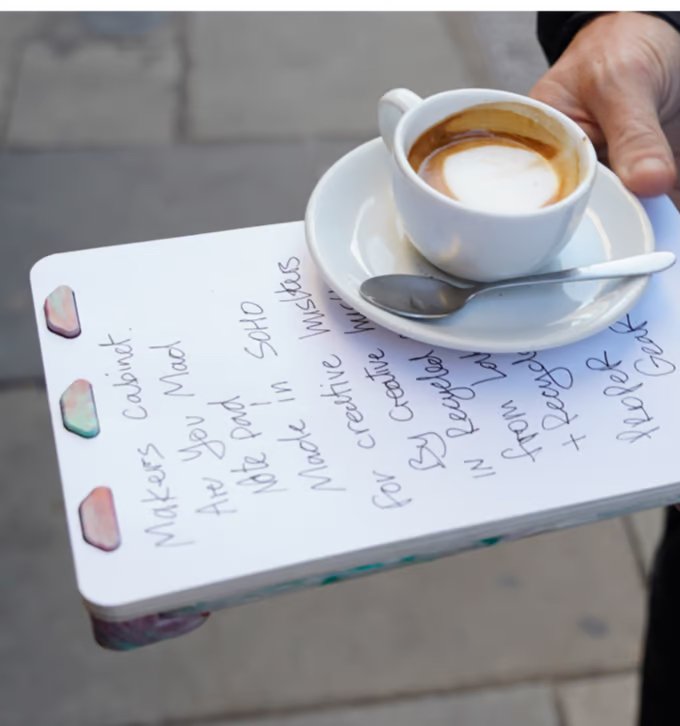 Makers cabinet.
Are You Mad
Note pad
Made in SOHO
For creative Misters
By Creative
in Recycled
from
+ Recycl
Proper Gear